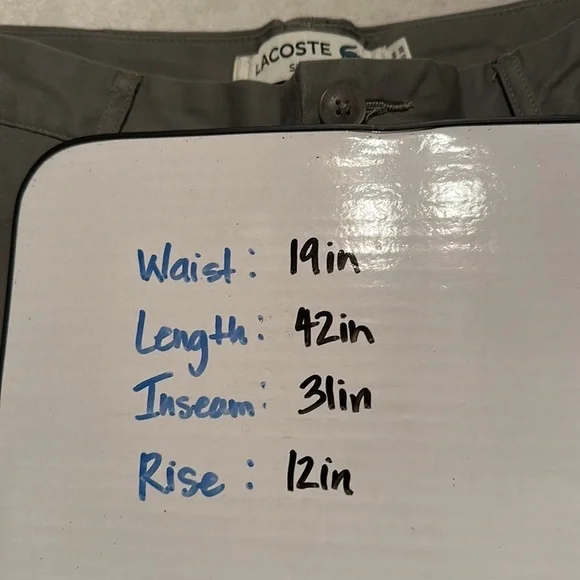 LACOSTE
Waist: 19in
Length: 42in
Inseam: 31in
Rise: 12in